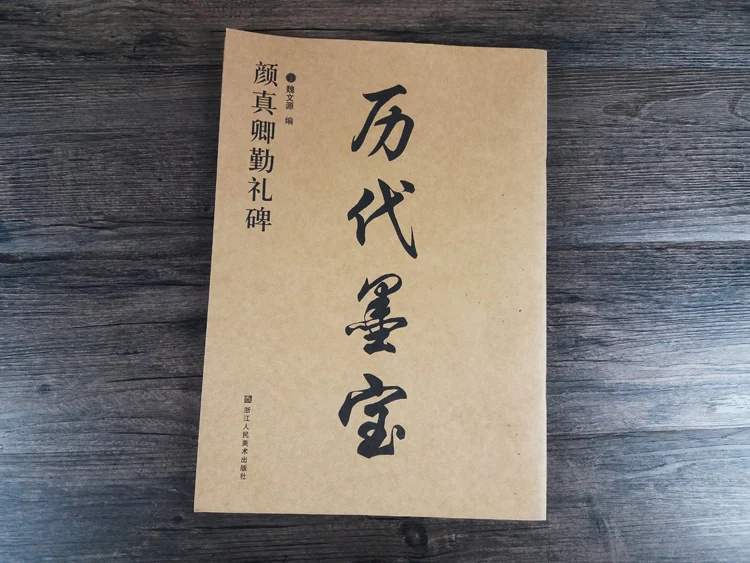 历代墨宝
魏文源 编
颜真卿勤礼碑
浙江人民美术出版社